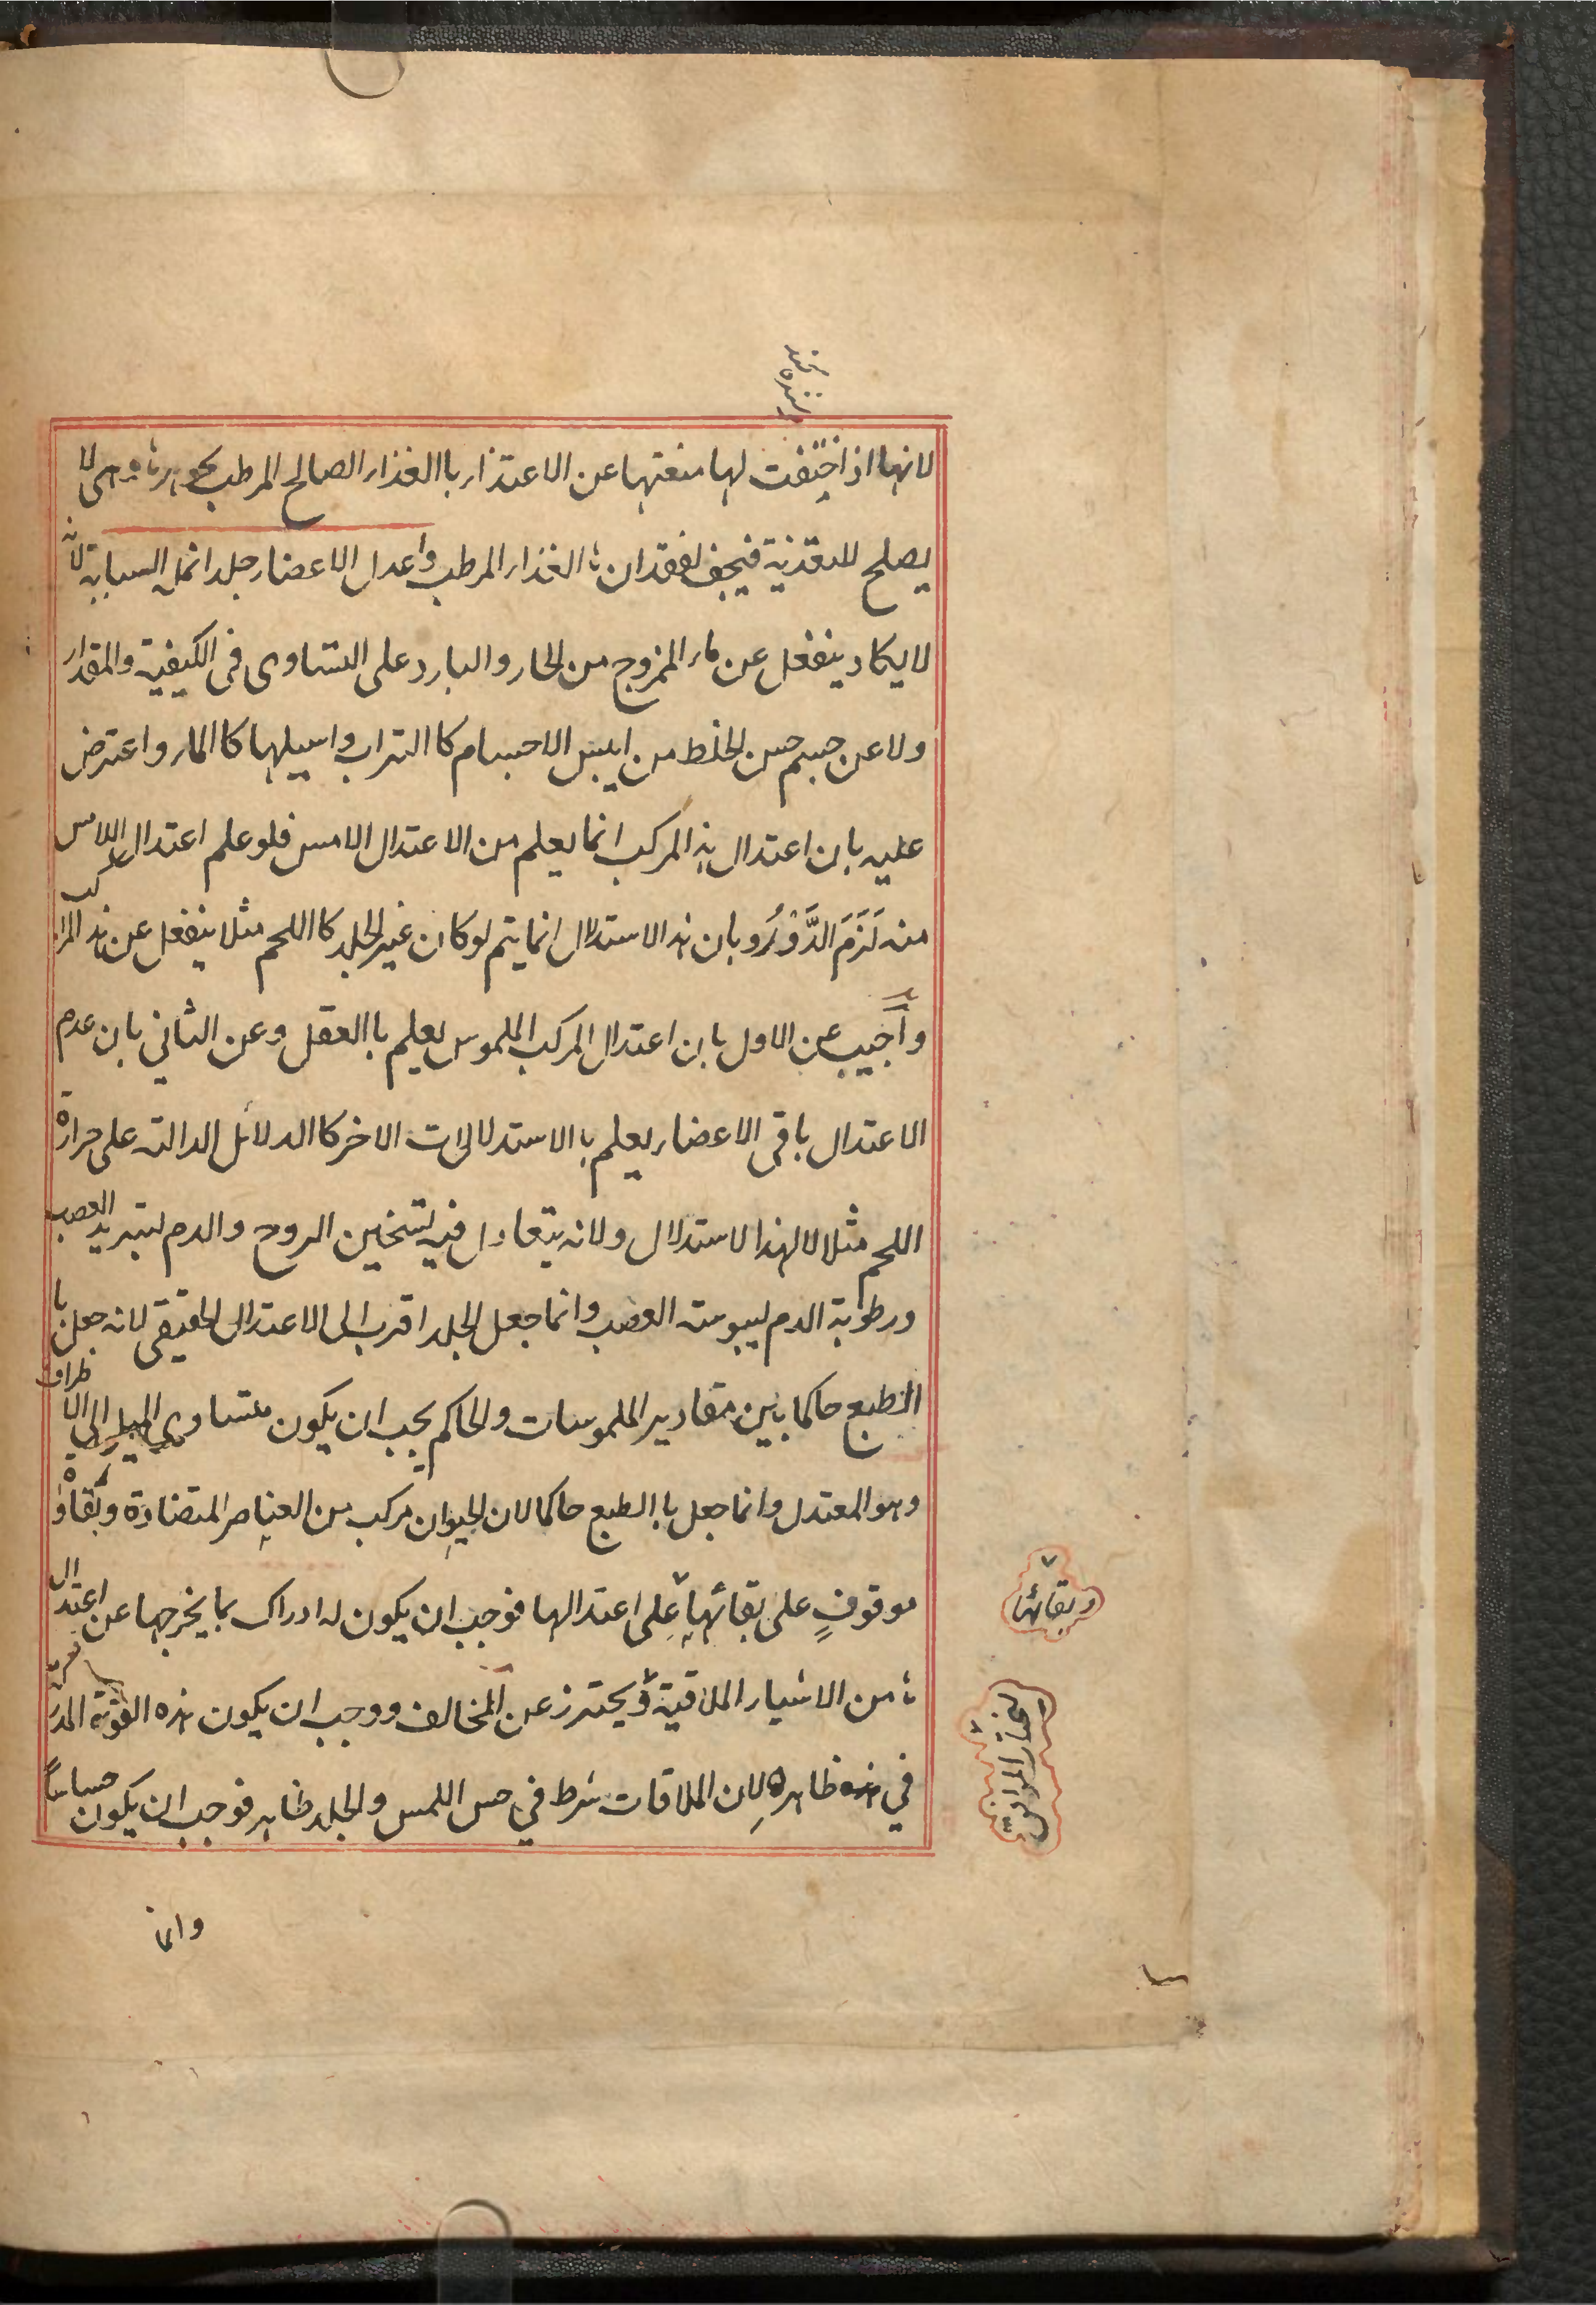 لانها اذا اختفت لها منعتها عن الاعتذاء باالغذاء الصالح المرطب لا
يصلح للتغذية فيجف لفقدان الغذاء المرطب واعدل الاعضاء جلد انملة السبابة لانه
لا يكاد ينفعل عن ماء الممزوج من الحار والبارد على التساوى فى الكيفية والمقدار
ولا عن جسم حسن الخلط من ايبس الاجسام كا التراب واسيلها كا الماء واعترض
عليه بان اعتدال هذا المركب انما يعلم من الاعتدال الامس فلو علم اعتدال اللامس
منه لَزَمَ الدَّوْرُ و بان هذ الاستدلال انما يتم لو كان غير الجلد كا اللحم مثلا ينفعل عن هذ المركب
واُجيب عن الاول بان اعتدال المركب الملموس يعلم باالعقل وعن الثاني بان عدم
الاعتدال باقى الاعضاء يعلم باالاستدلالات الاخر كا الدلائل الدالة على حرارة
اللحم مثلا لا لهذا الاستدلال ولانه يتعادل فيه تسخين الروح والدم لتبريد العصب
ورطوبة الدم ليبوسة العصب وانما جعل الجلد اقرب الى الاعتدال الحقيقي لانه جعل با
الطبع حاكما بين مقادير الملموسات والحاكم يجب ان يكون متساوي الميل الى الاطراف
وهو المعتدل وانما جعل باالطبع حاكما لان الحيوان مركب من العناصر المتضادة وبقاؤه
موقوفٍ على بقائها على اعتدالها فوجب ان يكون له ادراك بما يخرجها عن اعتدال
من الاشياء الملاقية و يحترز عن المخالف ووجب ان يكون هذه القوة المدركة
في ظاهره لان الملاقات شرط في حس اللمس والجلد ظاهر فوجب ان يكون حساسا
وبقائها
ليختار الموافق
وانما